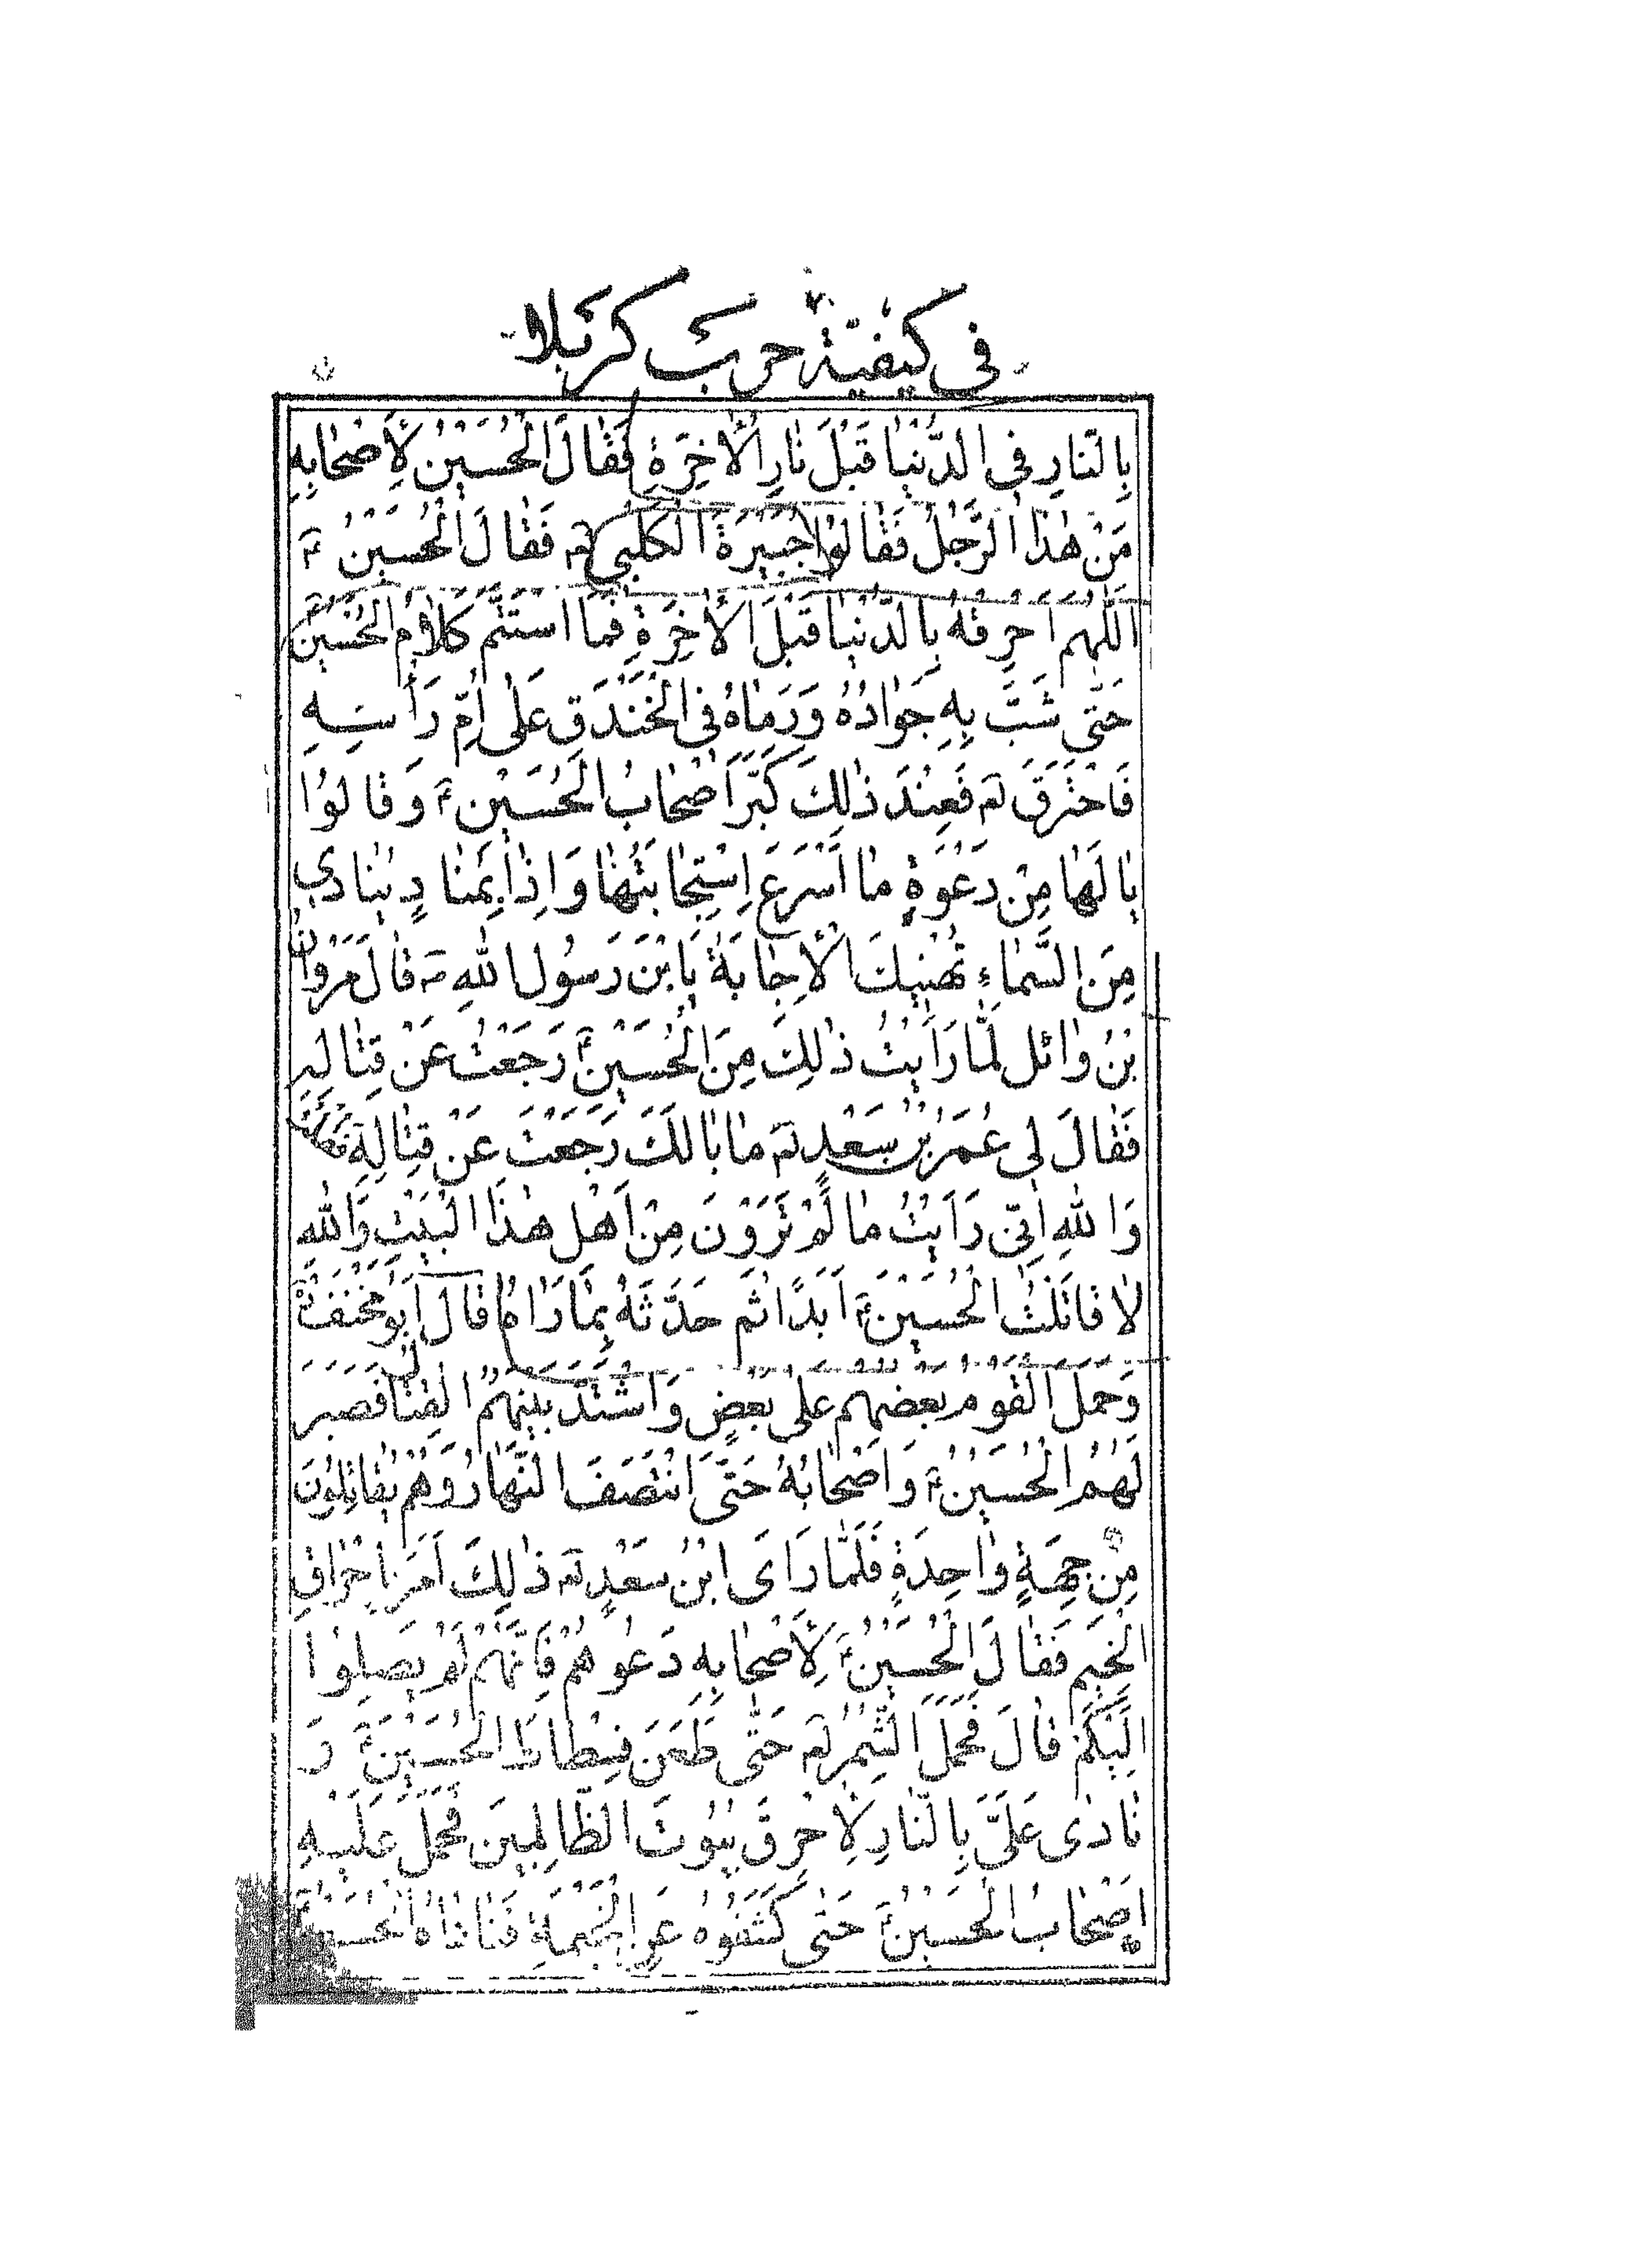 في كيفية حرب كربلا
بِالنّارِ فِي الدُّنْيٰا قَبْلَ نٰارِ الْاٰخِرَةِ فَقٰالَ الْحُسَيْنُ لِأَصْحٰابِهِ
مَنْ هٰذَا الرَّجُلُ فَقٰالُوا جُبَيْرَةُ الْكَلْبِي لع فَقٰالَ الْحُسَيْنُ ع
اَللّٰهُمَّ اَحْرِقْهُ بِالدُّنْيٰا قَبْلَ الْاٰخِرَةِ فَمَا اسْتَتَمَّ كَلٰامُ الْحُسَيْنِ
حَتّٰى شَبَّ بِهِ جَوٰادُهُ وَرَمٰاهُ فِي الْخَنْدَقِ عَلٰى اُمِّ رَأْسِهِ
فَاحْتَرَقَ لع فَعِنْدَ ذٰلِكَ كَبَّرَ اَصْحٰابُ الْحُسَيْنِ ع وَقٰالُوا
يٰا لَهٰا مِنْ دَعْوَةٍ مٰا اَسْرَعَ اِسْتِجٰابَتُهٰا وَاِذٰا بِمُنٰادٍ يُنٰادي
مِنَ السَّمٰاءِ تُهَنِّيكَ الْاِجٰابَةُ يَابْنَ رَسُولِ اللهِ ص قٰالَ مَرْوٰانُ
بْنُ وٰائل لَمّٰا رَاَيْتُ ذٰلِكَ مِنَ الْحُسَيْنِ ع رَجَعْتُ عَنْ قِتٰالِهِ
فَقٰالَ لي عُمَرُ بْنُ سَعْدٍ لع مٰا بٰالَكَ رَجَعْتَ عَنْ قِتٰالِهِ فَقُلْتُ
وَاللهِ اِنّي رَاَيْتُ مٰا لَمْ تَرَوْنَ مِنْ اَهْلِ هٰذَا الْبَيْتِ وَاللهِ
لٰا قٰاتَلْتُ الْحُسَيْنَ ع اَبَدًا ثُمَّ حَدَّثَهُ بِمٰا رَاٰهُ قٰالَ اَبُو مِخْنَفٍ
وَحَمَلَ الْقَوْمُ بَعْضُهُمْ عَلٰى بَعْضٍ وَاشْتَدَّ بَيْنَهُمُ الْقِتٰالُ فَصَبَرَ
لَهُمُ الْحُسَيْنُ ع وَاَصْحٰابُهُ حَتَّى انْتَصَفَ النَّهٰارُ وَهُمْ يُقٰاتِلُونَ
مِنْ جِهَةٍ وٰاحِدَةٍ فَلَمّٰا رَاَى ابْنُ سَعْدٍ لع ذٰلِكَ اَمَرَ بِاِحْرٰاقِ
الْخِيَمِ فَقٰالَ الْحُسَيْنُ ع لِأَصْحٰابِهِ دَعُوهُمْ فَاِنَّهُمْ لَمْ يَصِلُوا
اِلَيْكُمْ قٰالَ فَحَمَلَ الشِّمْرُ لع حَتّٰى طَعَنَ فِسْطٰاطَ الْحُسَيْنِ ع وَ
نٰادٰى عَلَيَّ بِالنّٰارِ لِاُحْرِقَ بُيُوتَ الظّٰالِمينَ فَحَمَلَ عَلَيْهِ
اَصْحٰابُ الْحُسَيْنِ ع حَتّٰى كَشَفُوهُ عَنِ الْخَيْمَةِ فَنٰادٰاهُ الْحُسَيْنُ ع